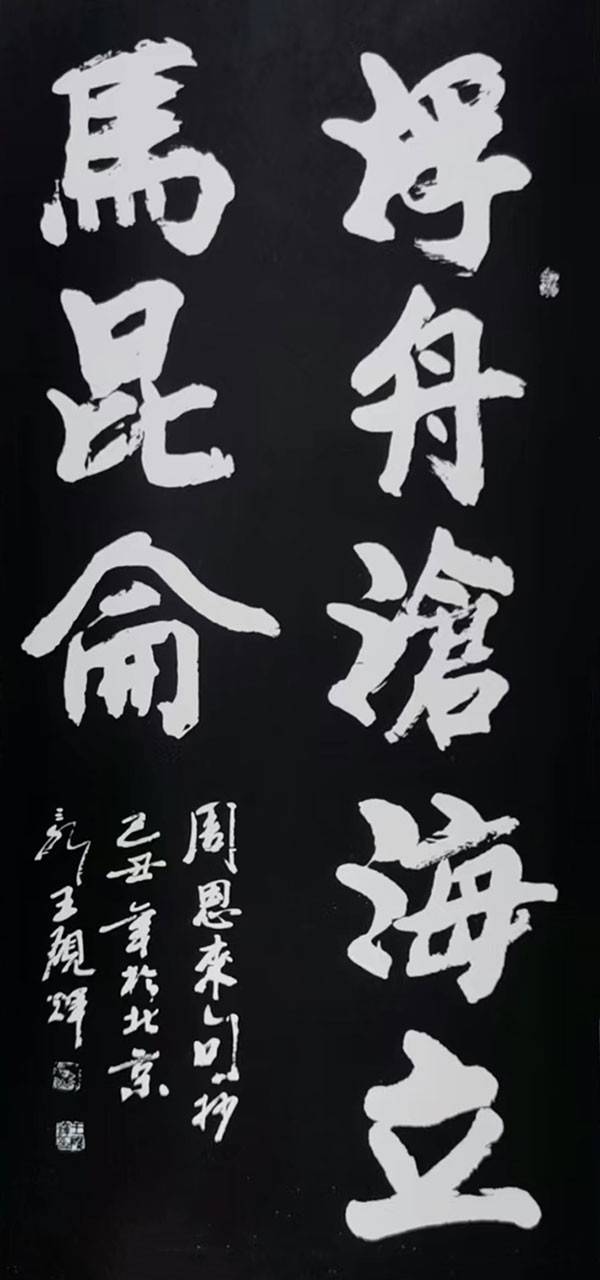 浮舟滄海立
馬昆侖
周恩來句抄
己丑年於北京
王